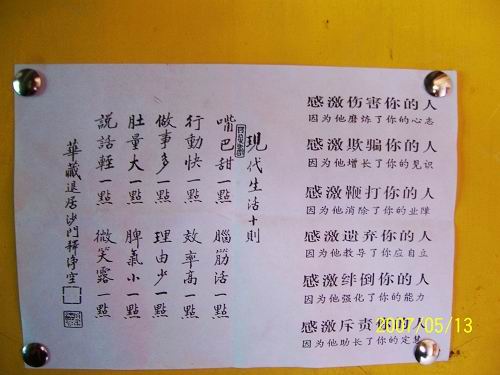 感激伤害你的人
因为他磨炼了你的心志
感激欺骗你的人
因为他增长了你的见识
感激鞭打你的人
因为他消除了你的业障
感激遗弃你的人
因为他教导了你应自立
感激绊倒你的人
因为他强化了你的能力
感激斥责你的人
因为他助长了你的定慧
現代生活十則
嘴巴甜一點 腦筋活一點
行動快一點 效率高一點
做事多一點 理由少一點
肚量大一點 脾氣小一點
說話輕一點 微笑露一點
華藏退居沙門釋淨空
2007/05/13